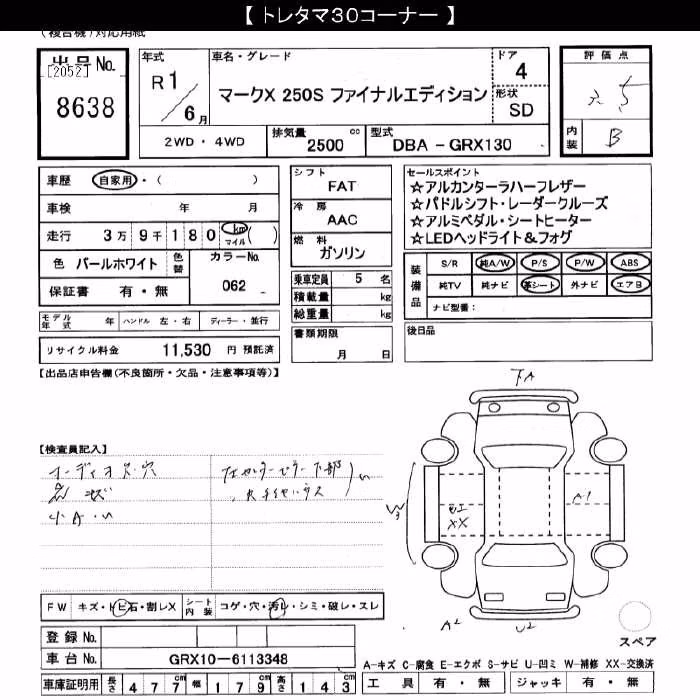 【 トレタマ30コーナー 】
(複合機)対応用紙
出品No.
[2052]
8638
年式
R1/6月
車名・グレード
マークX 250S ファイナルエディション
ドア
4
形状
SD
2WD・4WD
排気量
2500 cc
型式
DBA - GRX130
評価点
内装
B
車歴 自家用・( )
車検 年 月
走行 3万9千180 km マイル( )
色 パールホワイト 色替
カラーNo.
062
保証書 有・無
モデル年式 年 ハンドル 左・右 ディーラー・並行
リサイクル料金 11,530 円 預託済
シフト
FAT
冷房
AAC
燃料
ガソリン
乗車定員 5 名
積載量 kg
総重量 kg
書類期限
月 日
セールスポイント
☆アルカンターラハーフレザー
☆パドルシフト・レーダークルーズ
☆アルミペダル・シートヒーター
☆LEDヘッドライト&フォグ
装備品
S/R 純A/W P/S P/W ABS
純TV 純ナビ 革シート 外ナビ エアB
ナビ型番:
後日品
【出品店申告欄(不良箇所・欠品・注意事項等)】
【検査員記入】
オーディオ
小A・U
下A
W3
XX
A1
A2
U2
FW キズ・トビ石・割レX
シート内装 コゲ・穴・汚レ・シミ・破レ・スレ
登録No.
車台No. GRX10-6113348
車庫証明用 長さ 477 幅 179 高さ 143
スペア
A-キズ C-腐食 E-エクボ S-サビ U-凹ミ W-補修 XX-交換済
工具 有・無 ジャッキ 有・無